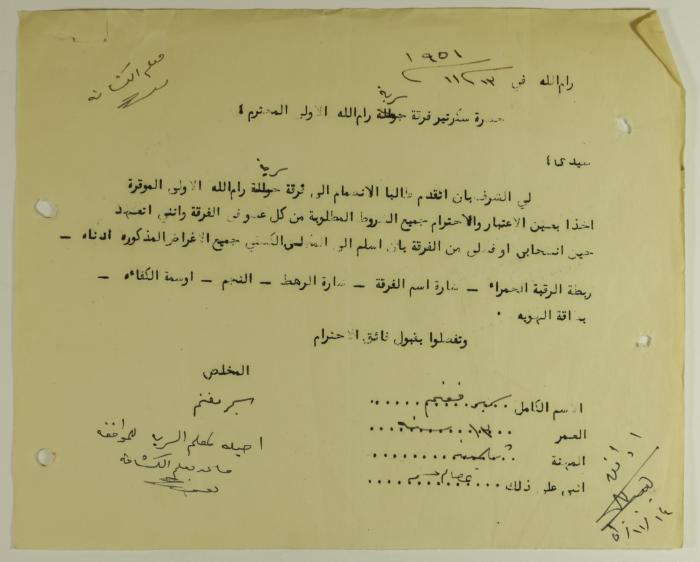 معلم الكشافة
١٩٥١
رام الله في ١٣/١١
سرية
حضرة سكرتير فرقة جوالة رام الله الاولى المحترم ،
سيدي ،
سرية
لي الشرف بان اتقدم طالبا الانضمام الى فرقة جوالة رام الله الاولى الموقرة
اخذا بعين الاعتبار والاحترام جميع الشروط المطلوبة من كل عضو في الفرقة وانني اتعهد
حين انسحابي او فصلي من الفرقة بان اسلم الى المجلس الكشفي جميع الاغراض المذكوره ادناه –
ربطة الرقبة الحمراء – شارة اسم الفرقة – شارة الرهط – النجم – اوسمة الكفاءه –
بطاقة الهويه .
وتفضلوا بقبول فائق الاحترام
المخلص
سمير مغنم
الاسم الكامل سمير مغنم
العمر ١٣ سنة
المهنة
اثنى على ذلك عصام
احيله لمعلم السرية للموافقه
معلم الكشافة
اوافق
١٤/١١/٥١